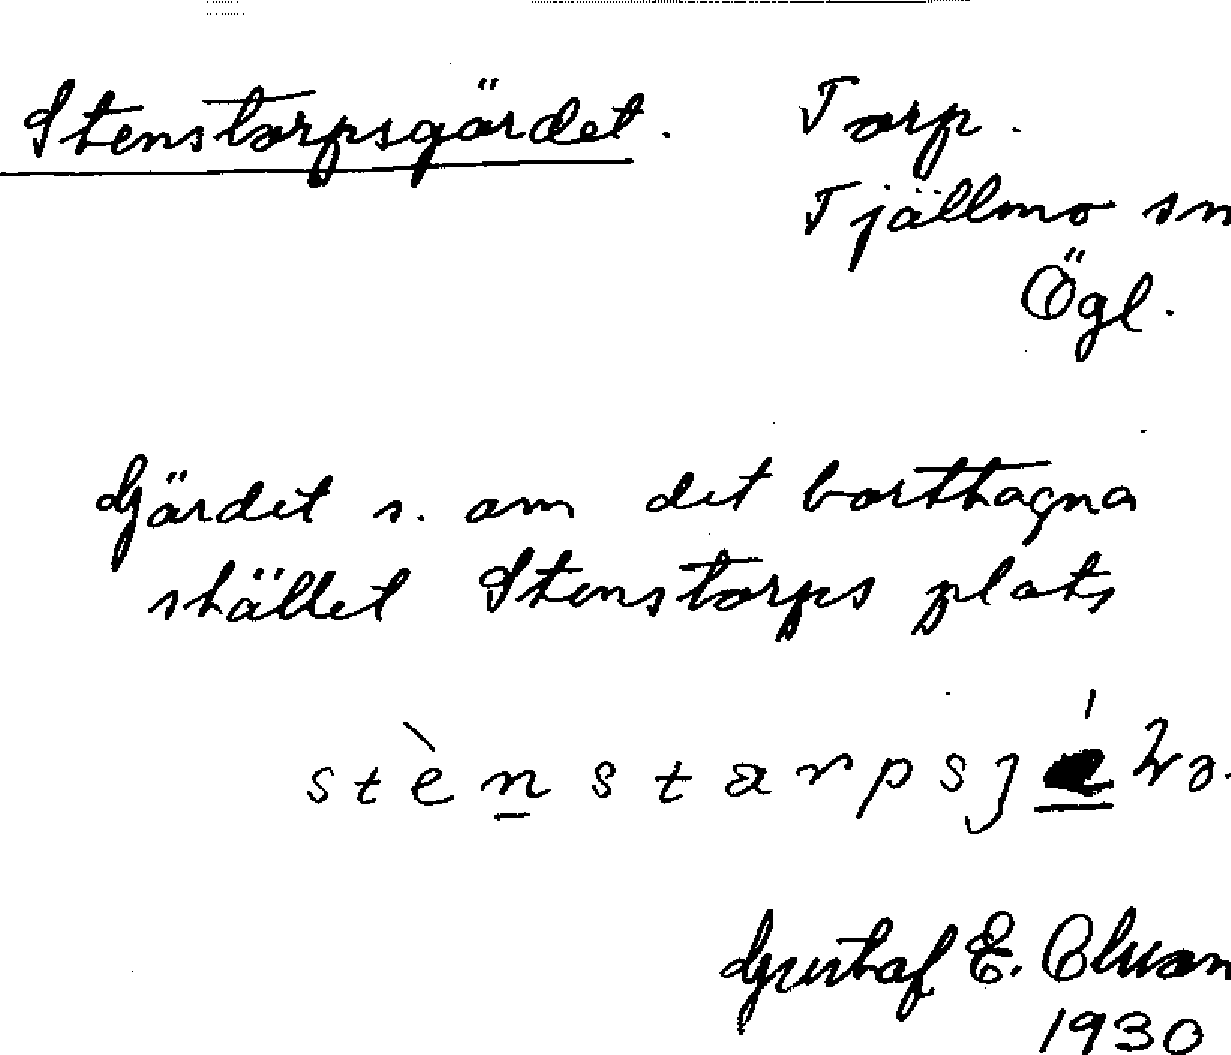 Stenstorpsgärdet. Torp.
Tjällmo sn
Ögl.
Gärdet s. om det borttagna
stället Stenstorps plats
Gustaf E.
1930